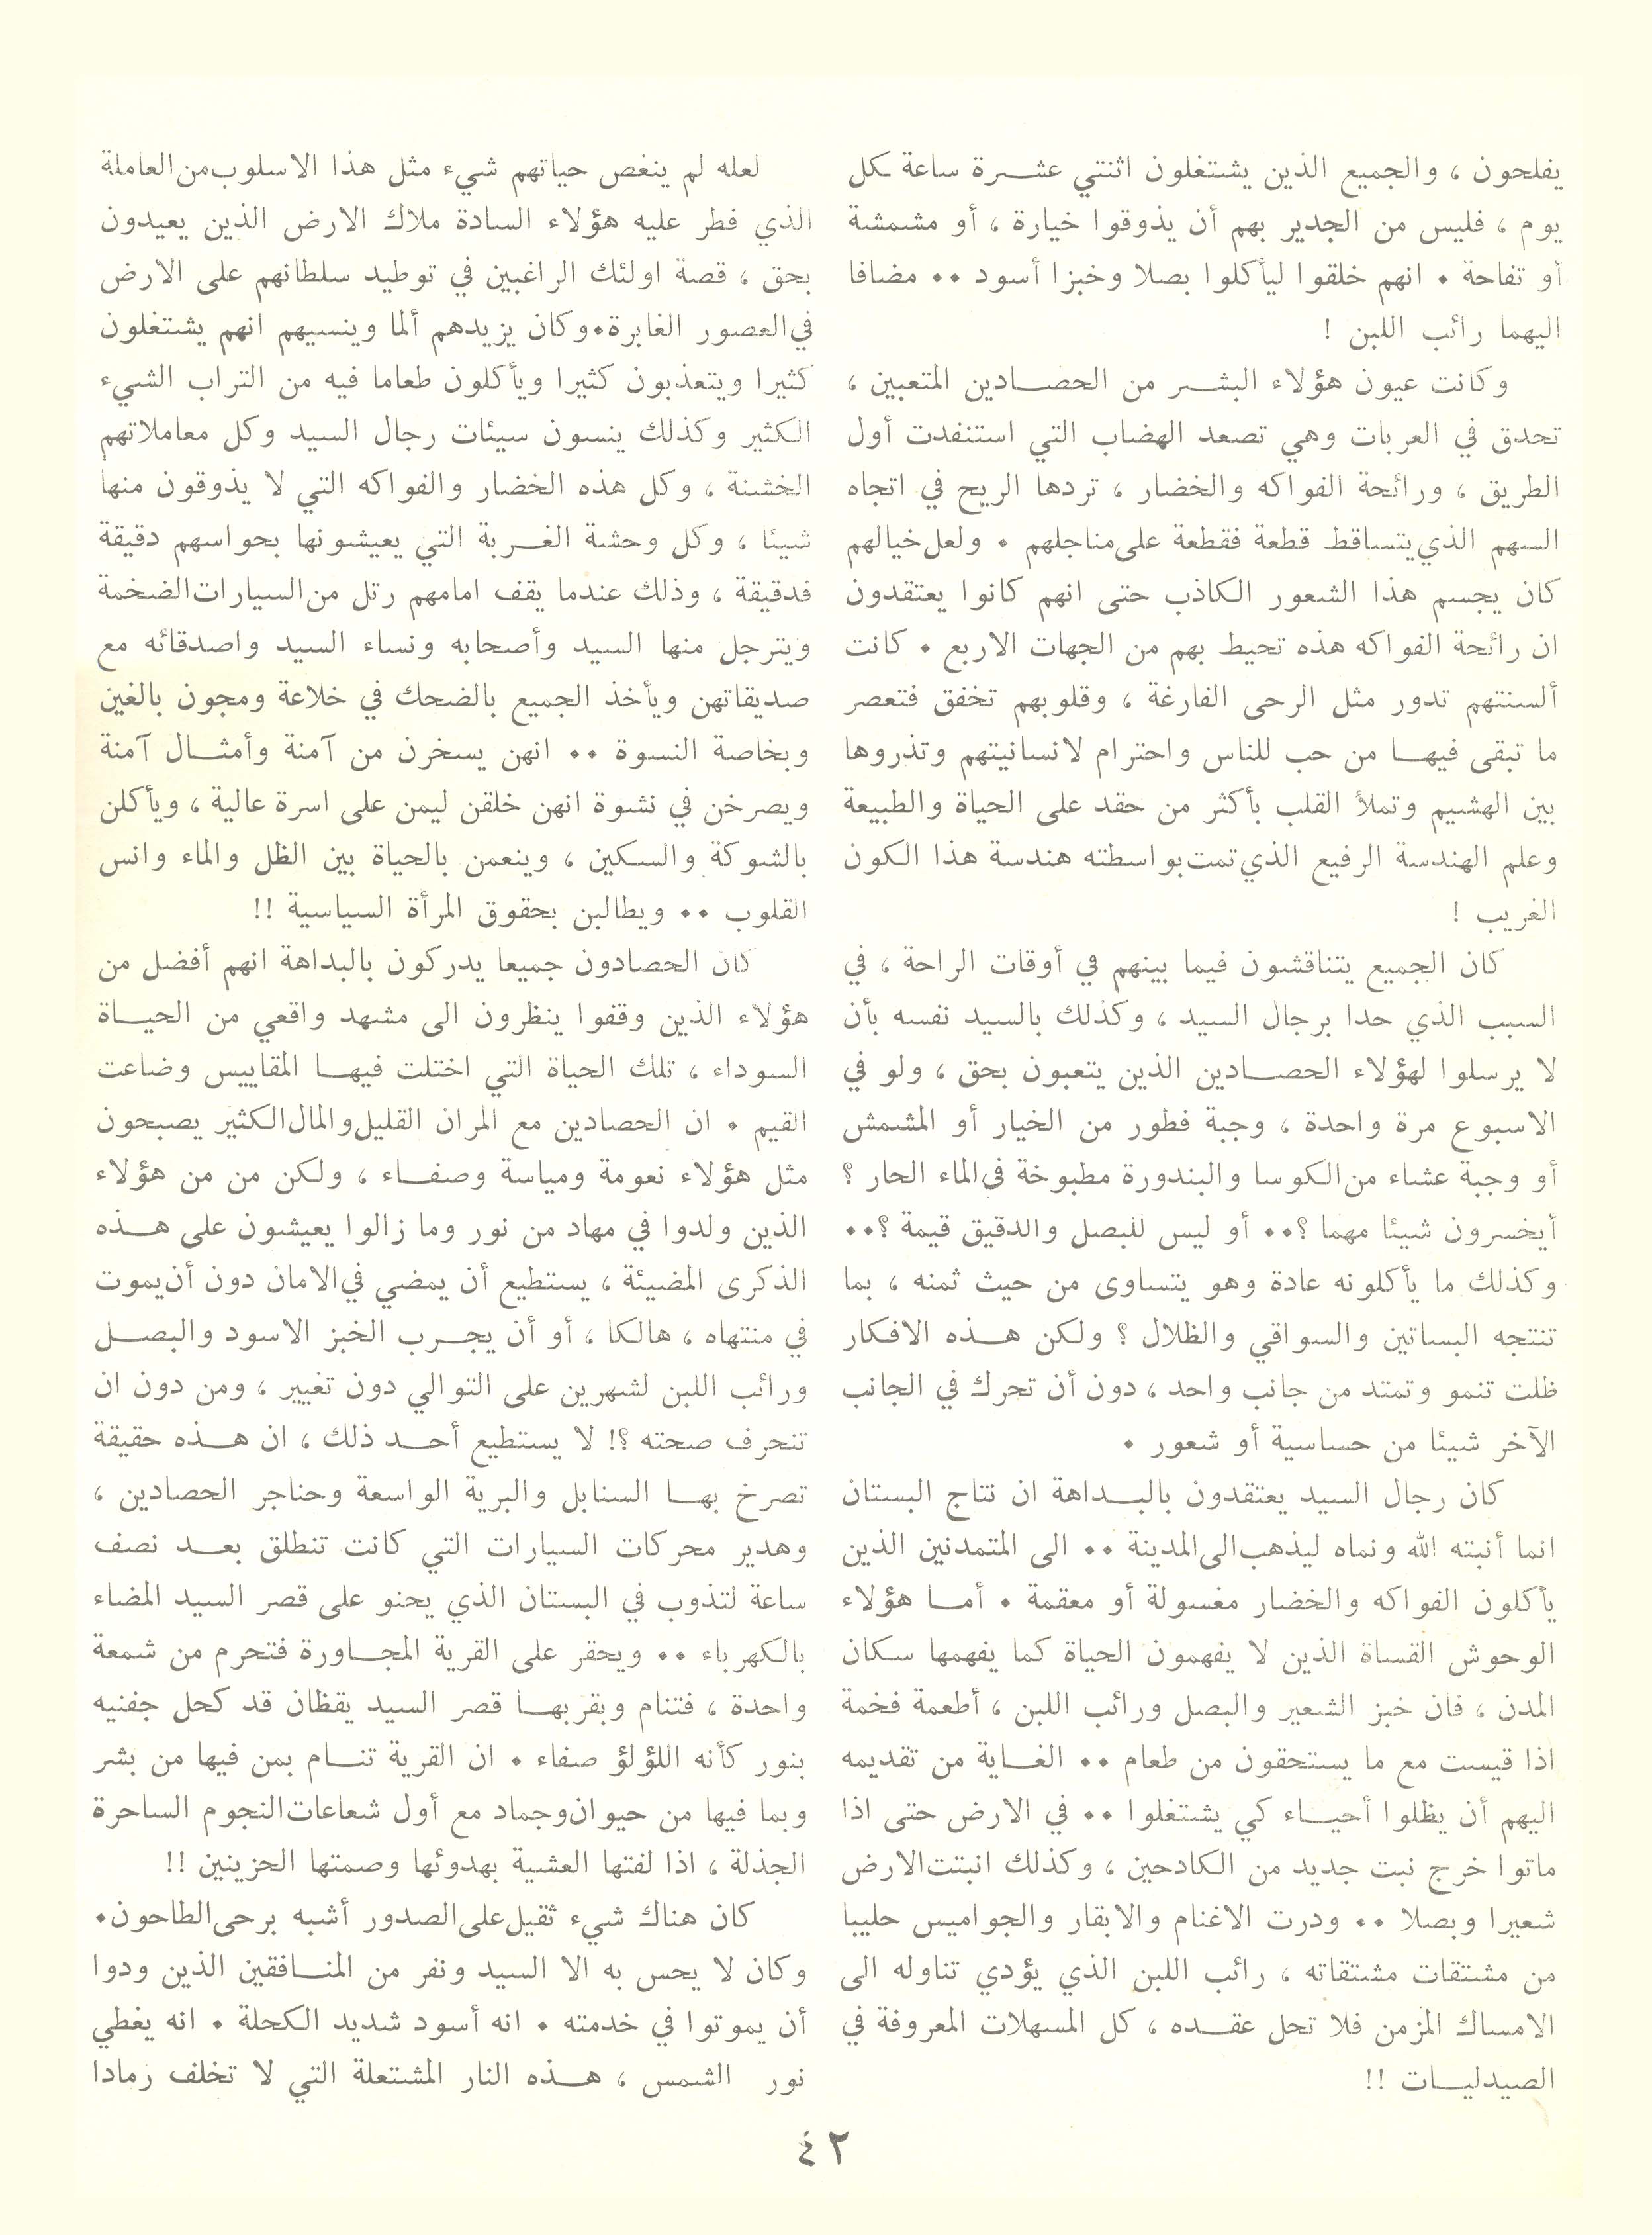 يفلحون ، والجميع الذين يشتغلون اثنتي عشرة ساعة كل
يوم ، فليس من الجدير بهم أن يذوقوا خيارة ، أو مشمشة
أو تفاحة . انهم خلقوا ليأكلوا بصلا وخبزا أسود .. مضافا
اليهما رائب اللبن !
وكانت عيون هؤلاء البشر من الحصادين المتعبين ،
تحدق في العربات وهي تصعد الهضاب التي استنفدت أول
الطريق ، ورائحة الفواكه والخضار ، تردها الريح في اتجاه
السهم الذي يتساقط قطعة فقطعة على مناجلهم . ولعل خيالهم
كان يجسم هذا الشعور الكاذب حتى انهم كانوا يعتقدون
ان رائحة الفواكه هذه تحيط بهم من الجهات الاربع . كانت
ألسنتهم تدور مثل الرحى الفارغة ، وقلوبهم تخفق فتعصر
ما تبقى فيها من حب للناس واحترام لانسانيتهم وتذروها
بين الهشيم وتملأ القلب بأكثر من حقد على الحياة والطبيعة
وعلم الهندسة الرفيع الذي تمت بواسطته هندسة هذا الكون
الغريب !
كان الجميع يتناقشون فيما بينهم في أوقات الراحة ، في
السبب الذي حدا برجال السيد ، وكذلك بالسيد نفسه بأن
لا يرسلوا لهؤلاء الحصادين الذين يتعبون بحق ، ولو في
الاسبوع مرة واحدة ، وجبة فطور من الخيار أو المشمش
أو وجبة عشاء من الكوسا والبندورة مطبوخة في الماء الحار ؟
أيخسرون شيئا مهما ؟.. أو ليس للبصل والدقيق قيمة ؟..
وكذلك ما يأكلونه عادة وهو يتساوى من حيث ثمنه ، بما
تنتجه البساتين والسواقي والظلال ؟ ولكن هذه الافكار
ظلت تنمو وتمتد من جانب واحد ، دون أن تحرك في الجانب
الآخر شيئا من حساسية أو شعور .
كان رجال السيد يعتقدون بالبداهة ان نتاج البستان
انما أنبته الله ونماه ليذهب الى المدينة .. الى المتمدنين الذين
يأكلون الفواكه والخضار مغسولة أو معقمة . أما هؤلاء
الوحوش القساة الذين لا يفهمون الحياة كما يفهمها سكان
المدن ، فان خبز الشعير والبصل ورائب اللبن ، أطعمة فخمة
اذا قيست مع ما يستحقون من طعام .. الغاية من تقديمه
اليهم أن يظلوا أحياء كي يشتغلوا .. في الارض حتى اذا
ماتوا خرج نبت جديد من الكادحين ، وكذلك انبتت الارض
شعيرا وبصلا .. ودرت الاغنام والابقار والجواميس حليبا
من مشتقات مشتقاته ، رائب اللبن الذي يؤدي تناوله الى
الامساك المزمن فلا تحل عقده ، كل المسهلات المعروفة في
الصيدليات !!
لعله لم ينغص حياتهم شيء مثل هذا الاسلوب من العاملة
الذي فطر عليه هؤلاء السادة ملاك الارض الذين يعيدون
بحق ، قصة اولئك الراغبين في توطيد سلطانهم على الارض
في العصور الغابرة. وكان يزيدهم ألما وينسيهم انهم يشتغلون
كثيرا ويتعذبون كثيرا ويأكلون طعاما فيه من التراب الشيء
الكثير وكذلك ينسون سيئات رجال السيد وكل معاملاتهم
الخشنة ، وكل هذه الخضار والفواكه التي لا يذوقون منها
شيئا ، وكل وحشة الغربة التي يعيشونها بحواسهم دقيقة
فدقيقة ، وذلك عندما يقف امامهم رتل من السيارات الضخمة
ويترجل منها السيد وأصحابه ونساء السيد واصدقائه مع
صديقاتهن ويأخذ الجميع بالضحك في خلاعة ومجون بالغين
وبخاصة النسوة .. انهن يسخرن من آمنة وأمثال آمنة
ويصرخن في نشوة انهن خلقن ليمن على اسرة عالية ، ويأكلن
بالشوكة والسكين ، وينعمن بالحياة بين الظل والماء وانس
القلوب .. ويطالبن بحقوق المرأة السياسية !!
كان الحصادون جميعا يدركون بالبداهة انهم أفضل من
هؤلاء الذين وقفوا ينظرون الى مشهد واقعي من الحياة
السوداء ، تلك الحياة التي اختلت فيها المقاييس وضاعت
القيم . ان الحصادين مع المران القليل والمال الكثير يصبحون
مثل هؤلاء نعومة ومياسة وصفاء ، ولكن من من هؤلاء
الذين ولدوا في مهاد من نور وما زالوا يعيشون على هذه
الذكرى المضيئة ، يستطيع أن يمضي في الامان دون أن يموت
في منتهاه ، هالكا ، أو أن يجرب الخبز الاسود والبصل
ورائب اللبن لشهرين على التوالي دون تغيير ، ومن دون ان
تنحرف صحته ؟! لا يستطيع أحد ذلك ، ان هذه حقيقة
تصرخ بها السنابل والبرية الواسعة وحناجر الحصادين ،
وهدير محركات السيارات التي كانت تنطلق بعد نصف
ساعة لتذوب في البستان الذي يحنو على قصر السيد المضاء
بالكهرباء .. ويحقر على القرية المجاورة فتحرم من شمعة
واحدة ، فتنام وبقربها قصر السيد يقظان قد كحل جفنيه
بنور كأنه اللؤلؤ صفاء . ان القرية تنام بمن فيها من بشر
وبما فيها من حيوان وجماد مع أول شعاعات النجوم الساحرة
الجذلة ، اذا لفتها العشية بهدوئها وصمتها الحزينين !!
كان هناك شيء ثقيل على الصدور أشبه برحى الطاحون.
وكان لا يحس به الا السيد ونفر من المنافقين الذين ودوا
أن يموتوا في خدمته . انه أسود شديد الكحلة . انه يغطي
نور الشمس ، هذه النار المشتعلة التي لا تخلف رمادا
٤٢